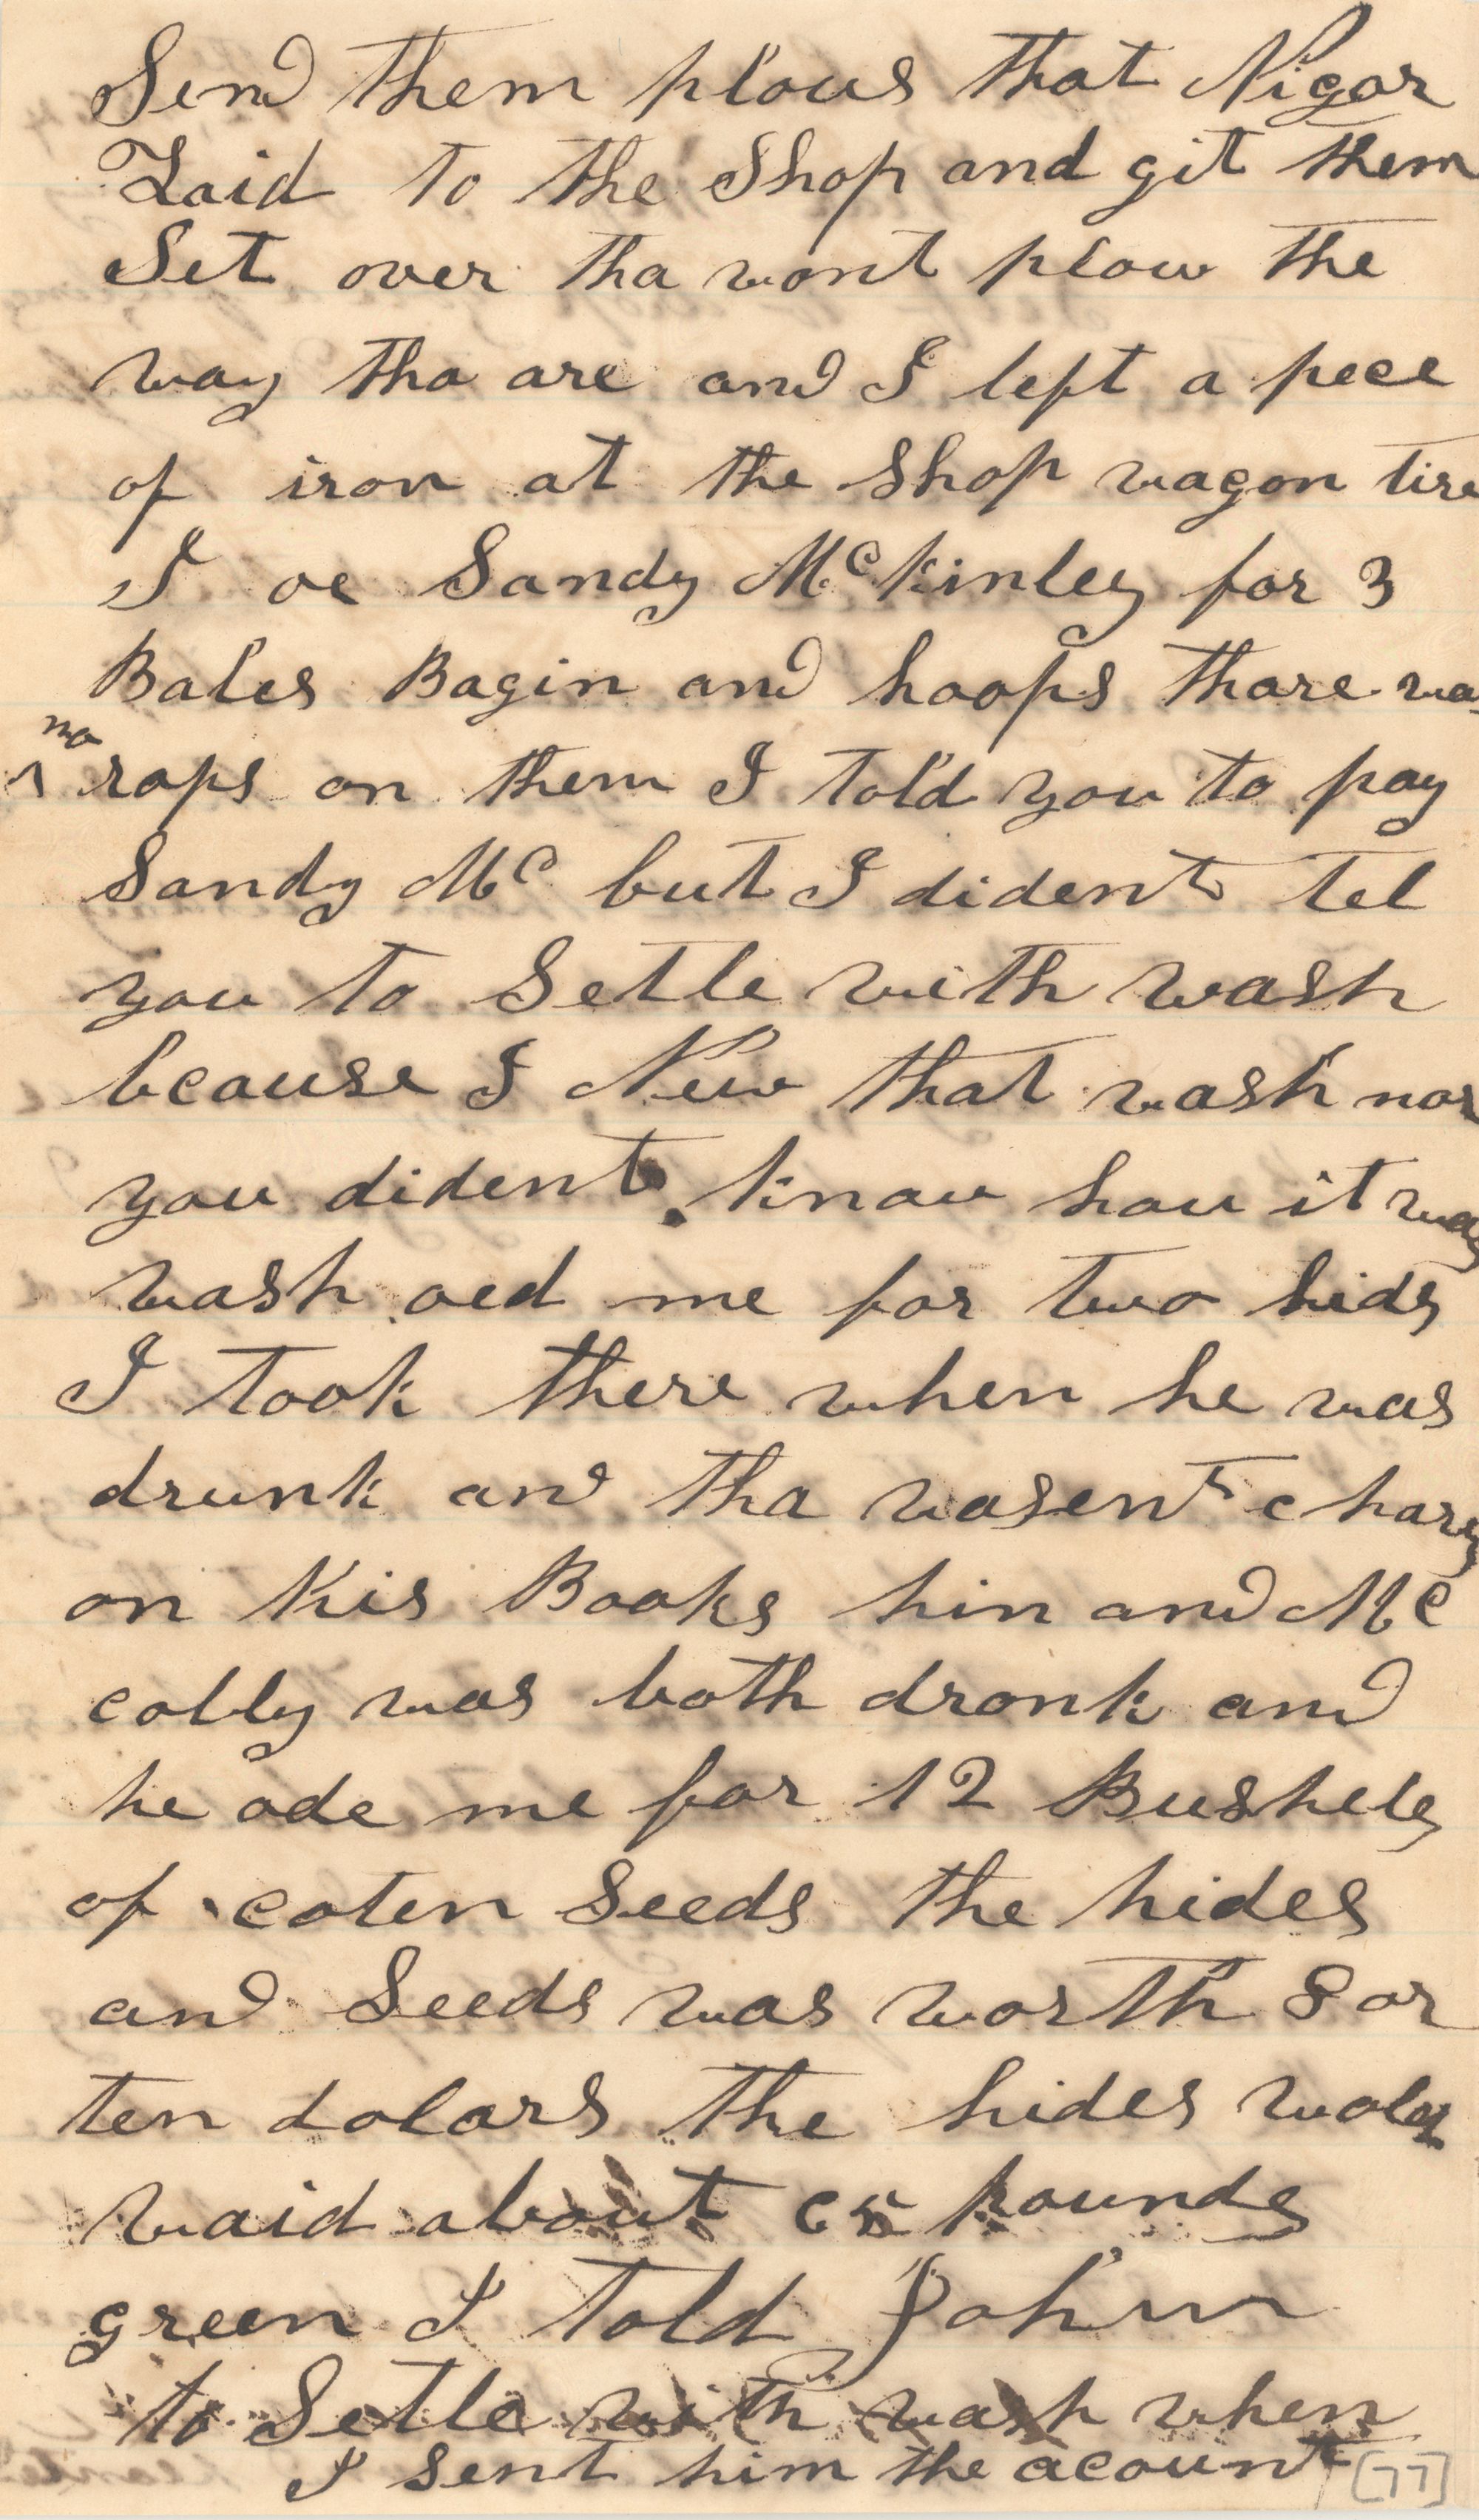 Send them plows that Nigar
Laid to the Shop and git them
Set over tha wont plow the
way tha are and I left a pece
of iron at the Shop wagon tire
I oe Sandy McKinley for 3
Bales Bagin and hoops thare was
no
^ raps on them I told you to pay
Sandy Mc but I dident tel
you to Setle with wash
because I New that wash nor
you dident know how it was
wash oed me for two hids
I took there when he was
drunk and tha wasent charg
on his Books hin and Mc
colly was both dronk and
he ode me for 12 Bushels
of coten Seeds the hides
and Seeds was worth 8 or
ten dolars the hides
waid about pounds
green I told John
to Setle with wash when
I sent him the acount
[77]